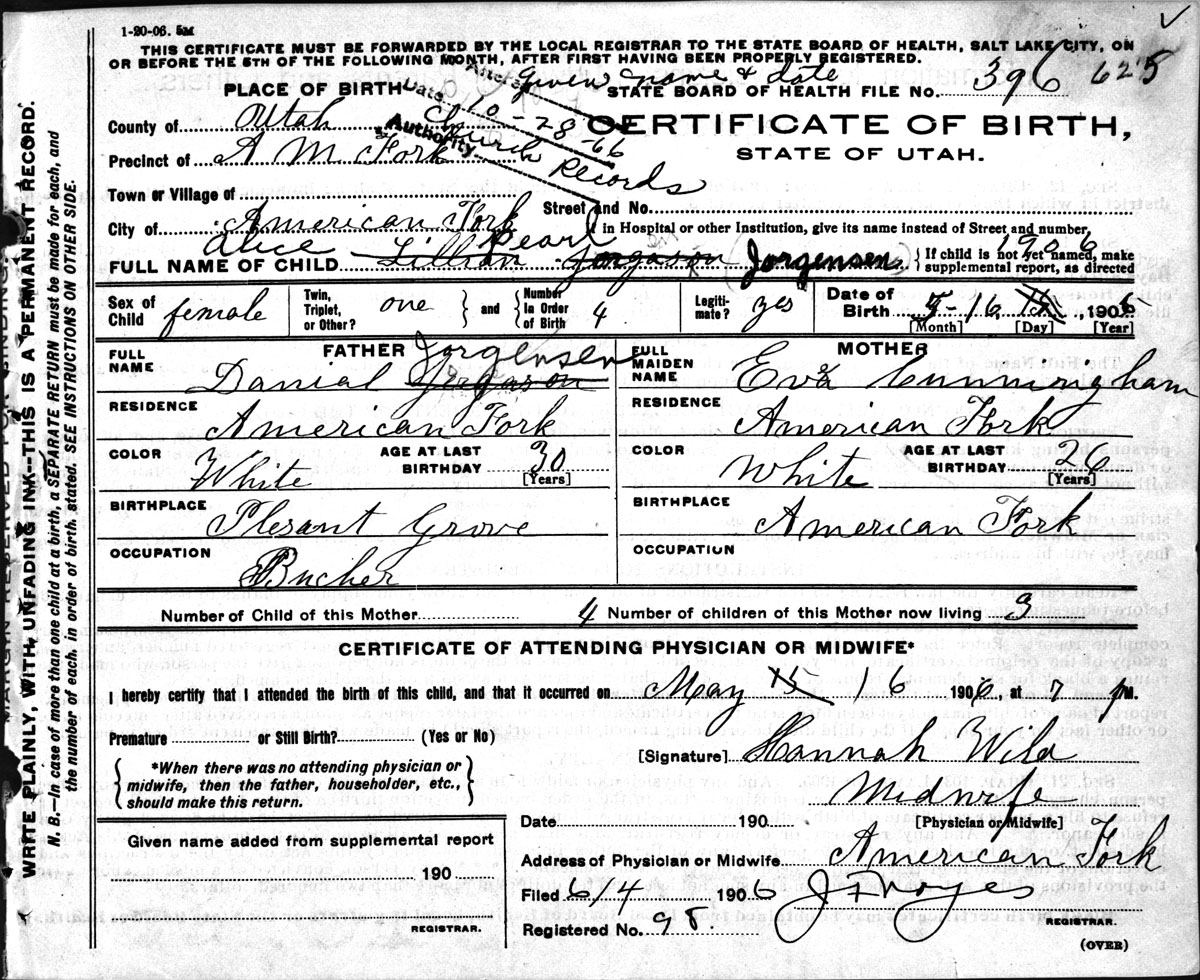 1-20-06. 5M
THIS CERTIFICATE MUST BE FORWARDED BY THE LOCAL REGISTRAR TO THE STATE BOARD OF HEALTH, SALT LAKE CITY, ON
OR BEFORE THE 5TH OF THE FOLLOWING MONTH, AFTER FIRST HAVING BEEN PROPERLY REGISTERED.
After given name & date
PLACE OF BIRTH Date 10-28-66 STATE BOARD OF HEALTH FILE NO. 396 625
County of Utah
Authority Church Records
CERTIFICATE OF BIRTH,
Precinct of A M. Fork STATE OF UTAH.
Town or Village of
Street and No.
City of American Fork
in Hospital or other Institution, give its name instead of Street and number,
Alice Pearl 1906
FULL NAME OF CHILD Lillian Jorgason Jorgensen { If child is not yet named, make
supplemental report, as directed
Sex of Child female Twin, Triplet, or Other? one and Number in Order of Birth 4 Legitimate? yes Date of Birth 5-16 15, 1906
[Month] [Day] [Year]
FATHER Jorgensen MOTHER
FULL NAME Danial Jorgason FULL MAIDEN NAME Eva Cunningham
RESIDENCE American Fork RESIDENCE American Fork
COLOR White AGE AT LAST BIRTHDAY 30 [Years] COLOR White AGE AT LAST BIRTHDAY 26 [Years]
BIRTHPLACE Plesant Grove BIRTHPLACE American Fork
OCCUPATION Bucher OCCUPATION
Number of Child of this Mother 4 Number of children of this Mother now living 3
CERTIFICATE OF ATTENDING PHYSICIAN OR MIDWIFE*
I hereby certify that I attended the birth of this child, and that it occurred on May 15 16 1906, at 7 PM.
Premature or Still Birth? (Yes or No)
[Signature] Hannah Wild
*When there was no attending physician or
midwife, then the father, householder, etc.,
should make this return.
Midwife
[Physician or Midwife]
Date 190
Given name added from supplemental report
190
REGISTRAR.
Address of Physician or Midwife American Fork
Filed 6/4 1906 J F Noyes
REGISTRAR.
Registered No. 98.
(OVER)
MARGIN RESERVED FOR BINDING
WRITE PLAINLY, WITH UNFADING INK--THIS IS A PERMANENT RECORD.
N. B.—In case of more than one child at a birth, a SEPARATE RETURN must be made for each, and
the number of each, in order of birth, stated. SEE INSTRUCTIONS ON OTHER SIDE.